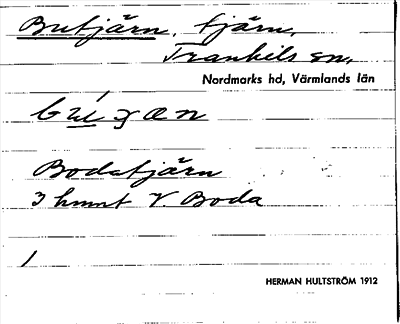 Butjärn, tjärn,
Trankils sn,
Nordmarks hd, Värmlands län
Bodatjärn
3 hmnt V. Boda
1
HERMAN HULTSTRÖM 1912